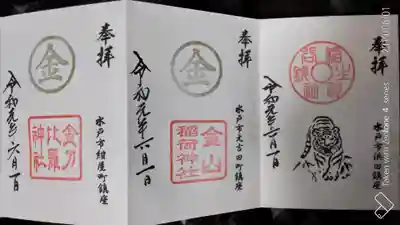 奉拝
水戸市浜田町鎮座
令和元年六月一日
奉拝
水戸市元吉田町鎮座
金
金山
稲荷神社
令和元年六月一日
奉拝
水戸市紺屋町鎮座
金
金刀
比羅
神社
令和元年六月一日
Taken with ZenFone 4 series